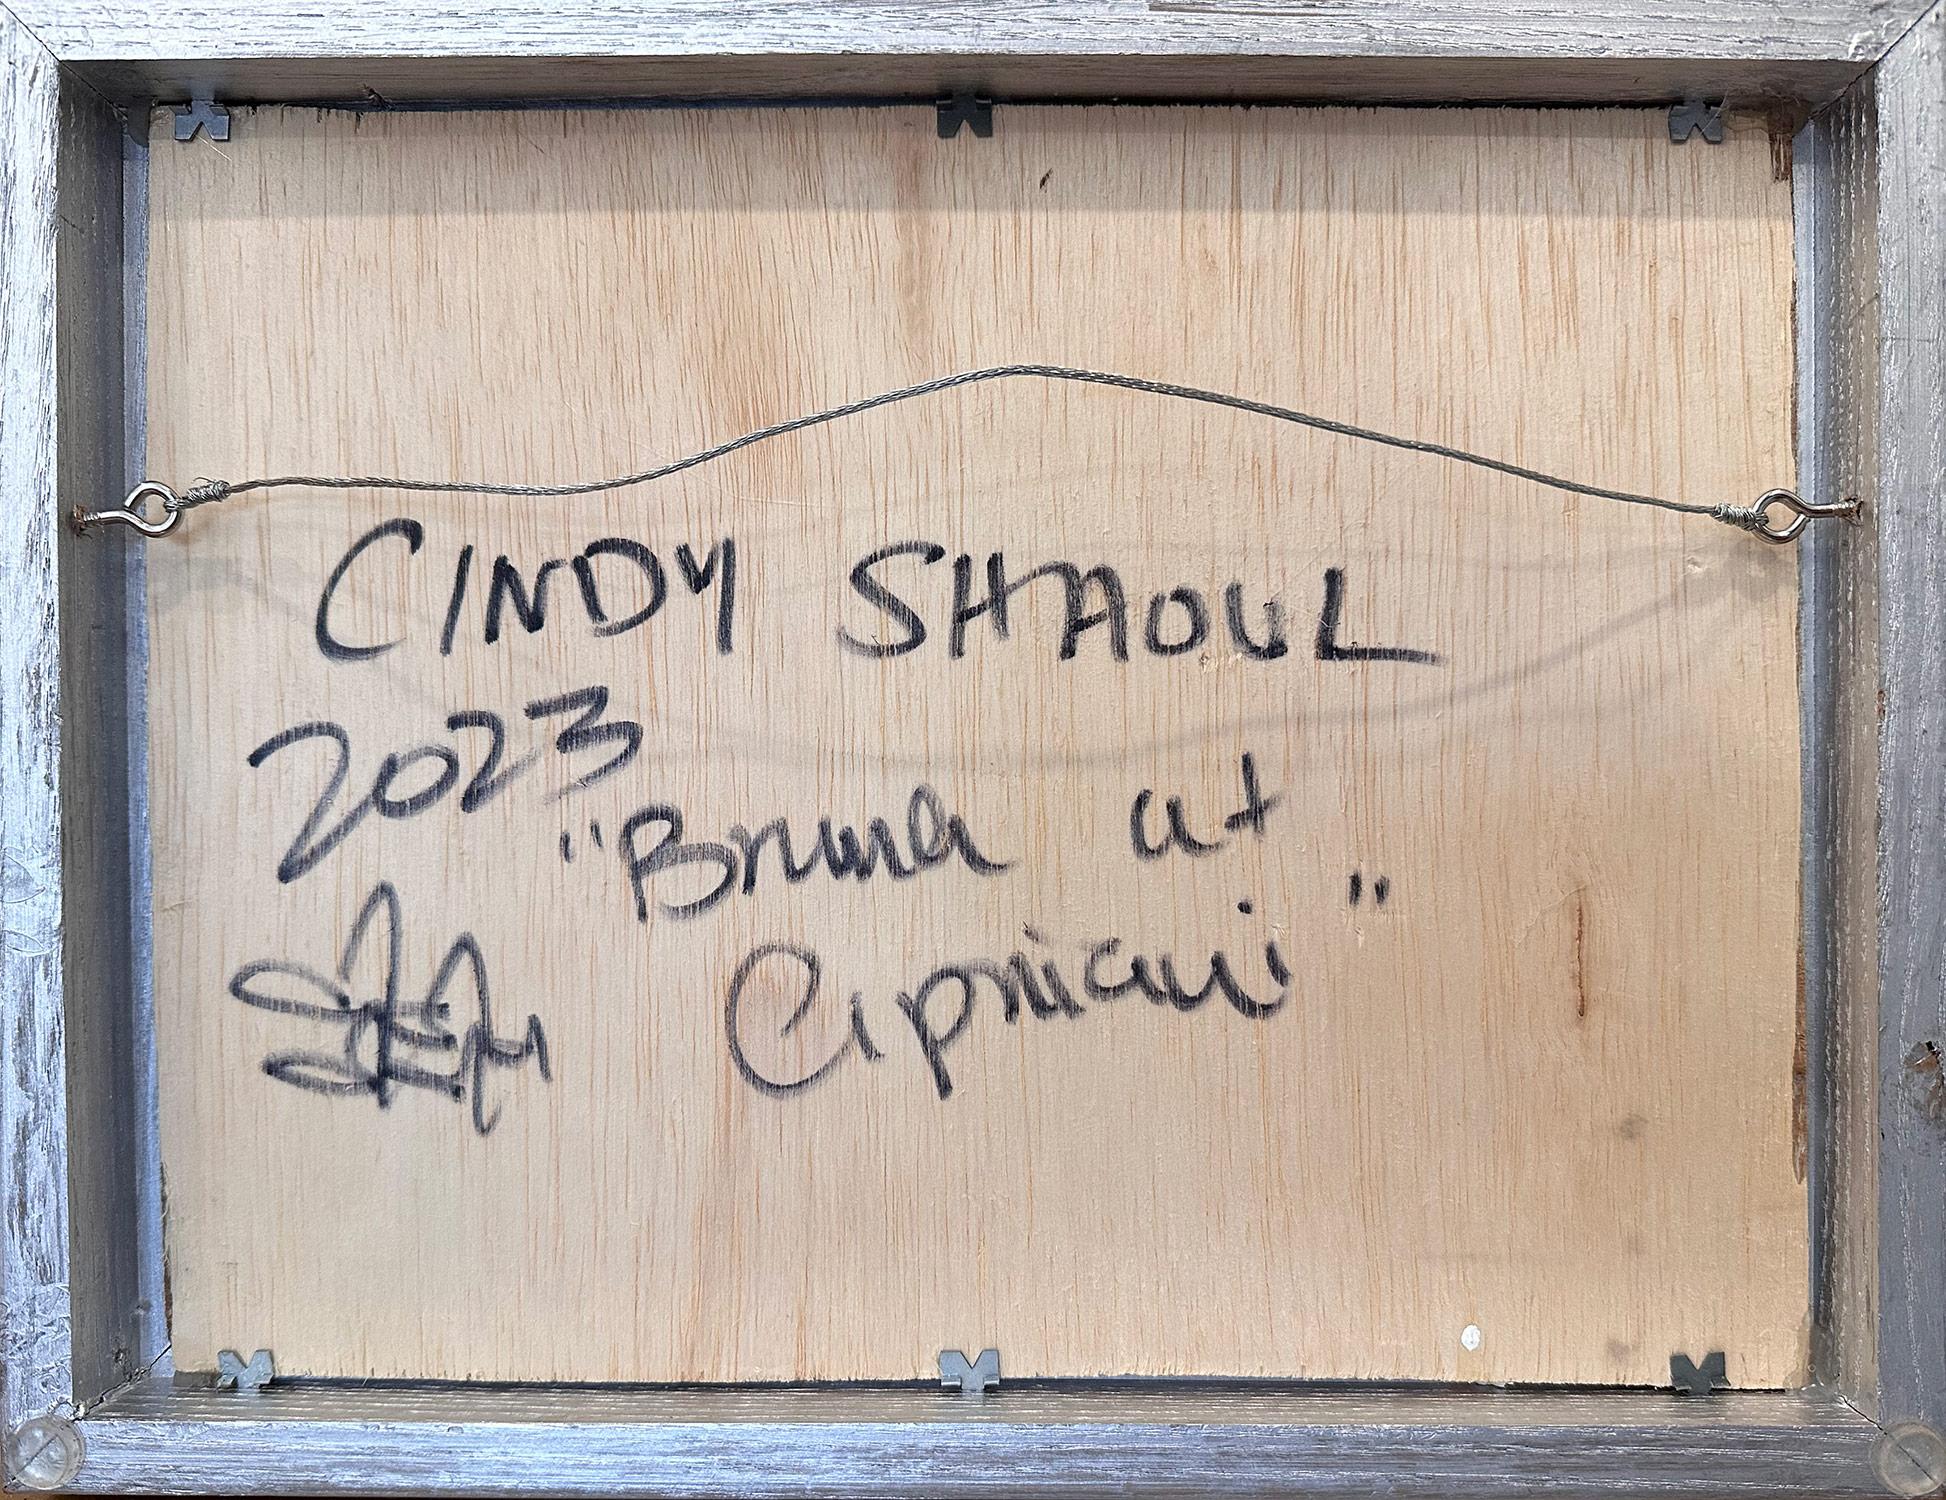 CINDY SHAOUL
2023
"Bruna at
Cipriani"